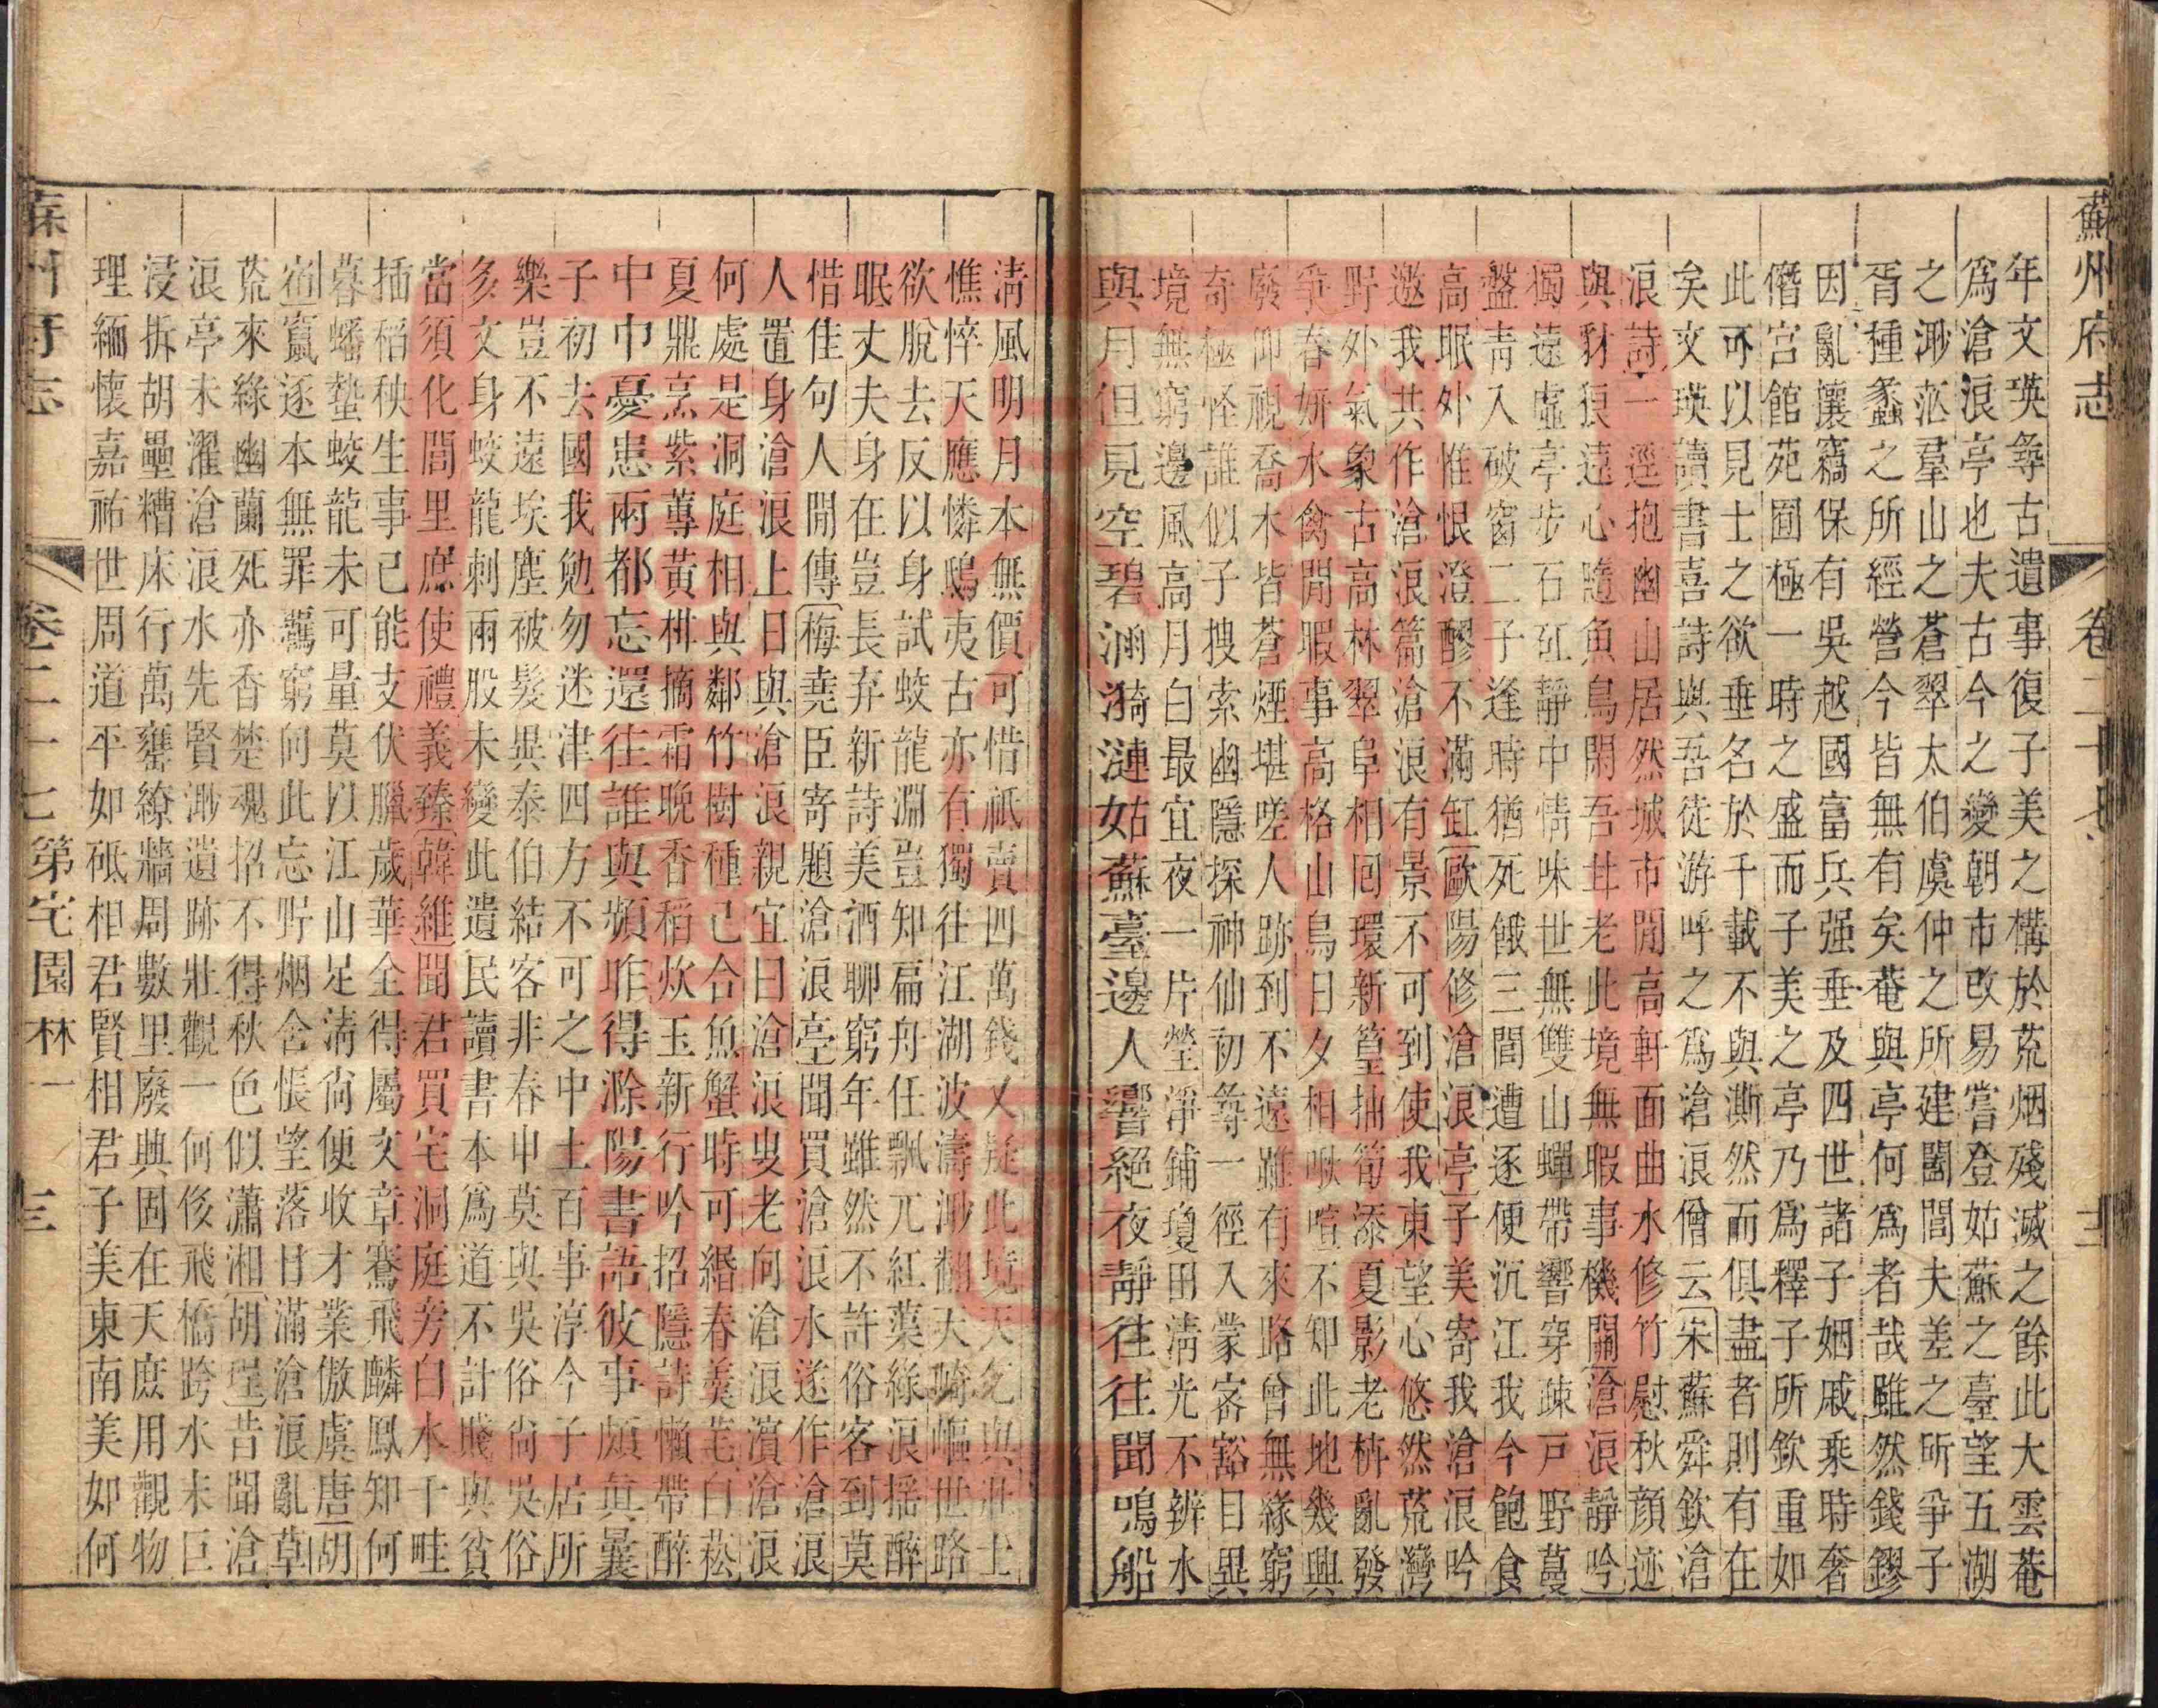 蘇州府志
卷二十七
年文瑛尋古遺事復子美之構於荒烟殘滅之餘此大雲菴
爲滄浪亭也夫古今之變朝市改易嘗登姑蘇之臺望五湖
之渺茫羣山之蒼翠太伯虞仲之所建闔閭夫差之所爭子
胥種蠡之所經營今皆無有矣菴與亭何爲者哉雖然錢鏐
因亂攘竊保有吳越國富兵强垂及四世諸子姻戚乘時奢
僭宮館苑囿極一時之盛而子美之亭乃爲釋子所欽重如
此可以見士之欲垂名於千載不與澌然而俱盡者則有在
矣文瑛讀書喜詩與吾徒游呼之爲滄浪僧云宋蘇舜欽滄
浪詩一逕抱幽山居然城市間高軒面曲水修竹慰秋顔迹
與豺狼遠心隨魚鳥閒吾甘老此境無暇事機關滄浪靜吟
獨遶虛亭步石矼靜中情味世無雙山蟬帶響穿疎戶野蔓
盤青入破窗二子逢時猶死餓三閭遭逐便沉江我今飽食
高眠外惟恨澄醪不滿缸歐陽修滄浪亭子美寄我滄浪吟
邀我共作滄浪篇滄浪有景不可到使我東望心悠然荒灣
野外氣象古高林翠阜相囘環新篁抽筍添夏影老枿亂發
爭春妍水禽閒暇事高格山鳥日夕相啾喧不知此地幾興
廢仰視喬木皆蒼煙堪嗟人跡到不遠雖有來路曾無緣窮
奇極怪誰似子搜索幽隱探神仙初尋一徑入蒙密豁目異
境無窮邊風高月白最宜夜一片瑩淨鋪瓊田淸光不辨水
與月但見空碧涵漪漣姑蘇臺邊人響絕夜靜往往聞鳴船
淸風明月本無價可惜祇賣四萬錢又疑此境天乞與壯士
憔悴天應憐鴟夷古亦有獨往江湖波濤渺翻天崎嶇世路
欲脫去反以身試蛟龍淵豈知扁舟任飄兀紅蕖綠浪揺醉
眠丈夫身在豈長弃新詩美酒聊窮年雖然不許俗客到莫
惜佳句人間傳梅堯臣寄題滄浪亭聞買滄浪水遂作滄浪
人置身滄浪上日與滄浪親宜曰滄浪叟老向滄浪濱滄浪
何處是洞庭相與鄰竹樹種己合魚蟹時可緡春羹芼白菘
夏鼎烹紫蓴黃柑摘霜晚香稻炊玉新行吟招隱詩懶帶醉
中巾憂患兩都忘還往誰與頻昨得滁陽書語彼事頗眞曩
子初去國我勉勿迷津四方不可之中土百事淳今子居所
樂豈不遠埃塵被髮異泰伯結客非春申莫與吳俗尙吳俗
多文身蛟龍刺兩股未變此遺民讀書本爲道不計賤與貧
當須化閭里庶使禮義臻韓維聞君買宅洞庭旁白水千畦
插稻秧生事已能支伏臘歲華全得屬文章騫飛麟鳳知何
暮蟠蟄蛟龍未可量莫以江山足淸尙便收才業傲虞唐胡
宿竄逐本無罪羈窮向此忘野烟含悵望落日滿滄浪亂草
荒來綠幽蘭死亦香楚魂招不得秋色似瀟湘胡珵昔聞滄
浪亭未濯滄浪水先賢渺遺跡壯觀一何侈飛橋跨水末巨
浸拆胡壘糟床行萬甕繚牆周數里廢興固在天庶用觀物
理緬懷嘉祐世周道平如砥相君賢相君子美東南美如何
蘇州府志
卷二十七
第宅園林一
三